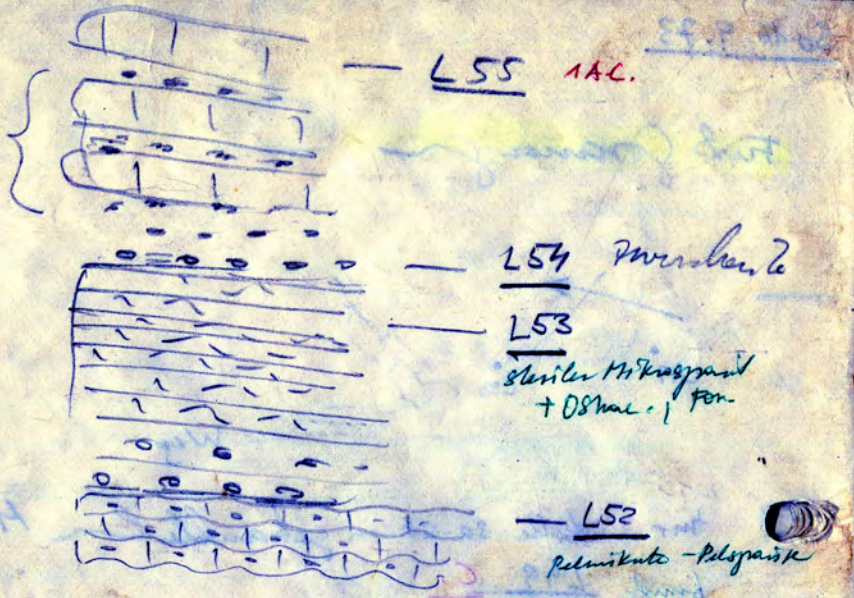 L55 1AC.
L54
L53
steriler Mikrosparit
+ Ostrac., For
L52
Pelmikrite - Pelsparite